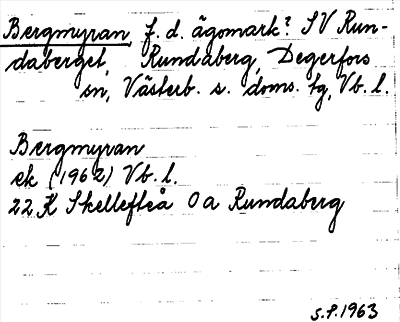 Bergmyran, f. d. ägomark? SV Run-
daberget, Rundaberg, Degerfors
sn, Västerb. s. doms. tg, Vb. l.
Bergmyran
ek (1962) Vb. l.
22 K Skellefteå 0 a Rundaberg
S.P. 1963